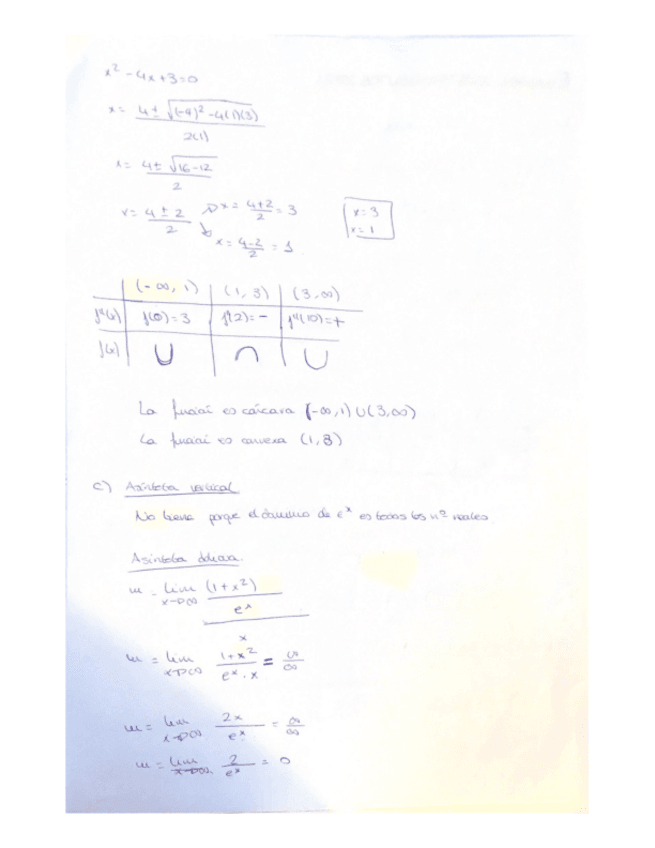 x² - 4x + 3 = 0
x = 4 ± √(-4)² - 4(1)(3) / 2(1)
x = 4 ± √16 - 12 / 2
x = 4 ± 2 / 2 x = 4+2 / 2 = 3
x = 4-2 / 2 = 1
x = 3
x = 1
(-∞, 1) (1, 3) (3, ∞)
f''(x) f(0) = 3 f''(2) = - f''(10) = +
f(x) ∪ ∩ ∪
La función es cóncava (-∞, 1) ∪ (3, ∞)
La función es convexa (1, 3)
c) Asíntota vertical
No tiene porque el dominio de eˣ es todos los nº reales
Asíntota oblicua.
m = lim x→∞ (1 + x²) / eˣ / x
m = lim x→∞ 1 + x² / eˣ · x = ∞ / ∞
m = lim x→∞ 2x / eˣ = ∞ / ∞
m = lim x→∞ 2 / eˣ = 0